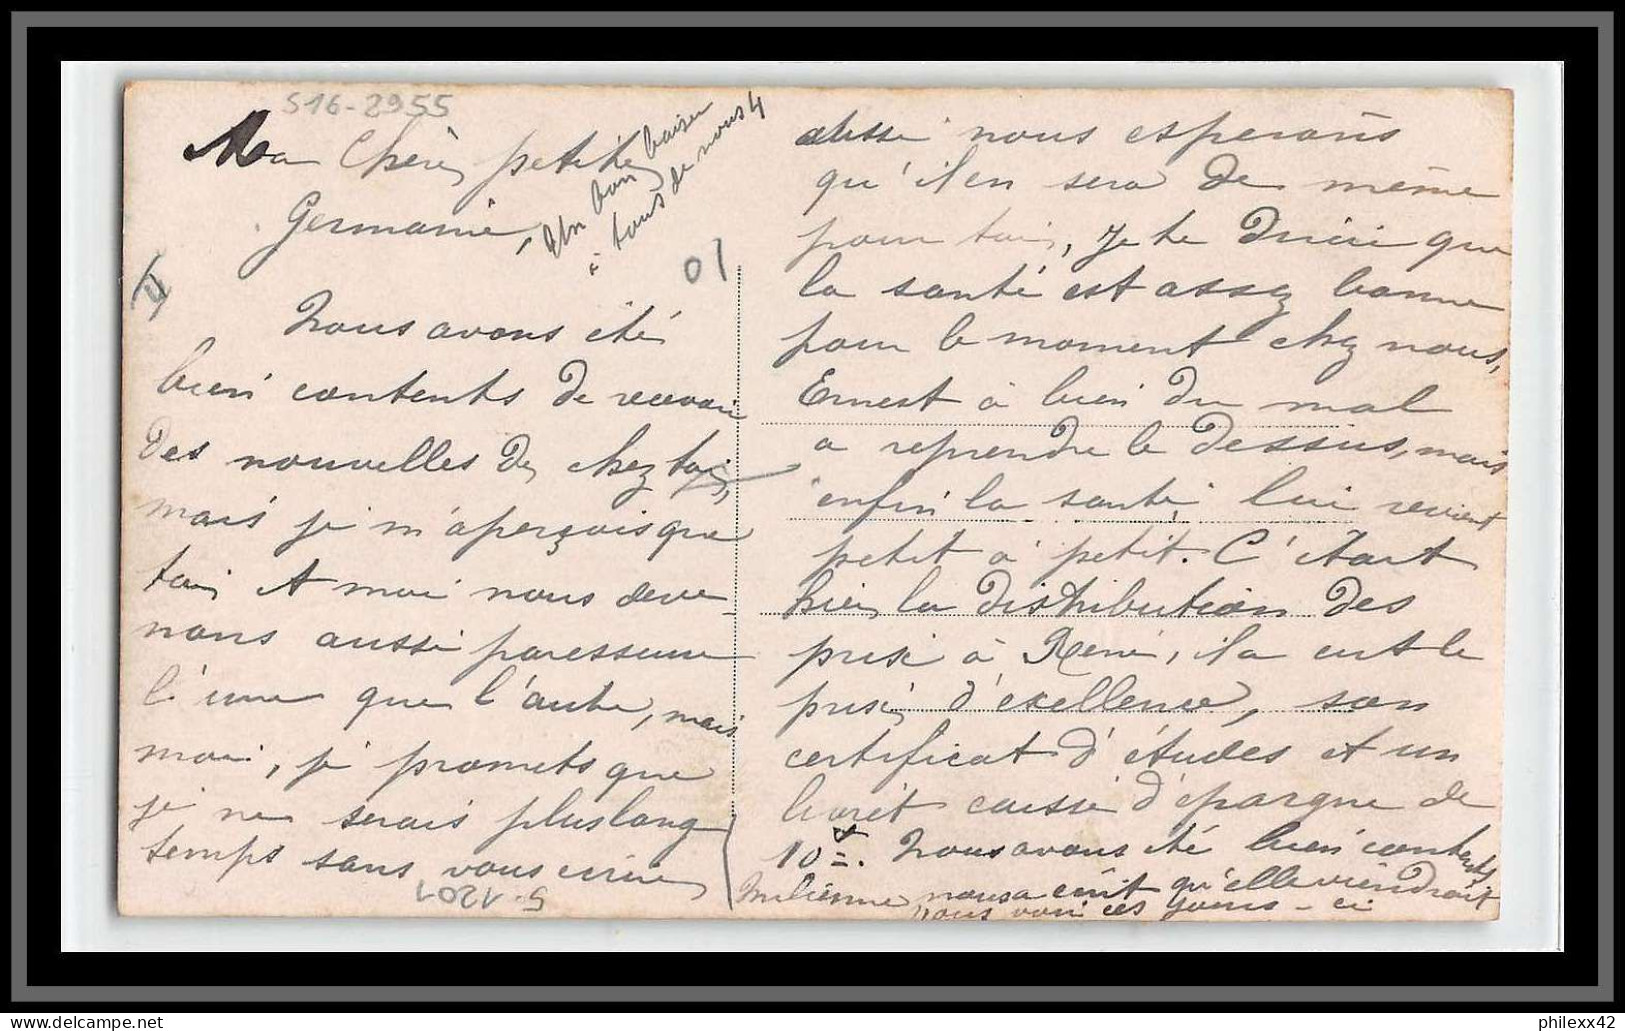 S16-2955
Ma Chère petite
Germaine,
Un bon baiser
à tous de nous 4
01
Nous avons été
bien contents de recevoir
des nouvelles de chez toi,
mais je m'aperçois que
toi et moi nous deve-
nons aussi paresseuse
l'une que l'autre, mais
moi, je promets que
je ne serais plus long
temps sans vous écrire
5-1201
aussi nous esperons
qu'il en sera de même
pour toi, Je te dirai que
la santé est assez bonne
pour le moment chez nous,
Ernest à bien du mal
a reprendre le dessus, mais
enfin la santé lui revient
petit à petit. C'était
hier la distribution des
prix à René, il a eut le
prix d'exellence, son
certificat d'études et un
livret caisse d'épargne de
10f. Nous avons été bien contents
nous a écrit qu'elle viendrait
nous voir ces jours-ci
philexx42